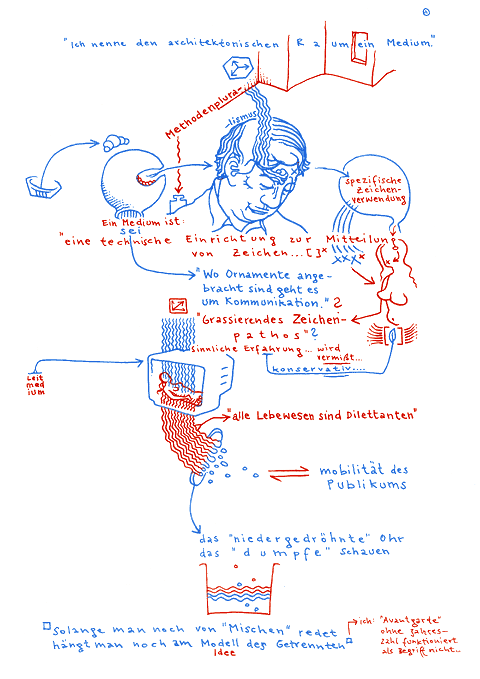 "Ich nenne den architektonischen Raum ein Medium."
Methodenplura-
lismus
spezifische
Zeichen-
verwendung
Ein Medium ist:
sei
"eine technische Einrichtung zur Mitteilung
von Zeichen...[]"
"Wo Ornamente ange-
bracht sind geht es
um Kommunikation." ?
"Grassierendes Zeichen-
pathos" ?
sinnliche Erfahrung... wird
vermißt...
konservativ....
Leit
med
ium
"alle Lebewesen sind Dilettanten"
mobilität des
Publikums
das "niedergedröhnte" Ohr
das "dumpfe" Schauen
Solange man noch von "Mischen" redet
hängt man noch am Modell des Getrennten
Idee
ich: "Avantgarde"
ohne Jahres-
zahl funktioniert
als Begriff nicht...